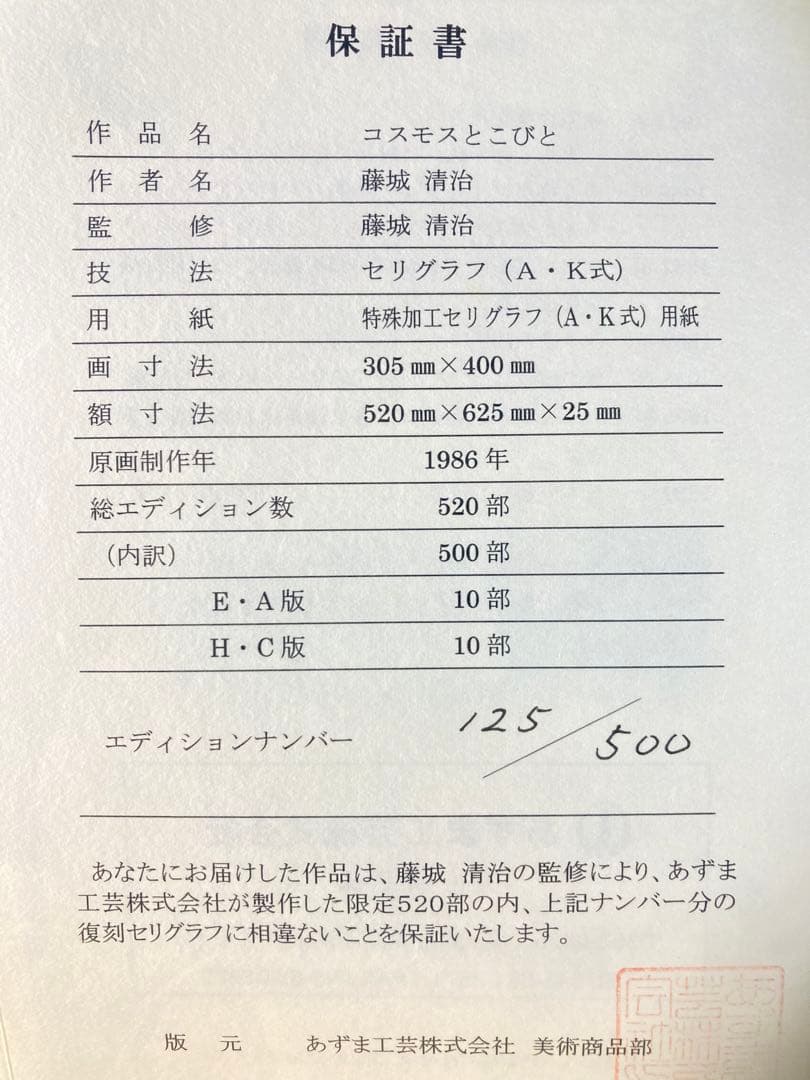 保証書
作品名 コスモスとこびと
作者名 藤城 清治
監修 藤城 清治
技法 セリグラフ（A・K式）
用紙 特殊加工セリグラフ（A・K式）用紙
画寸法 305㎜×400㎜
額寸法 520㎜×625㎜×25㎜
原画制作年 1986年
総エディション数 520部
（内訳） 500部
E・A版 10部
H・C版 10部
エディションナンバー 125/500
あなたにお届けした作品は、藤城 清治の監修により、あずま
工芸株式会社が製作した限定520部の内、上記ナンバー分の
復刻セリグラフに相違ないことを保証いたします。
版元 あずま工芸株式会社 美術商品部